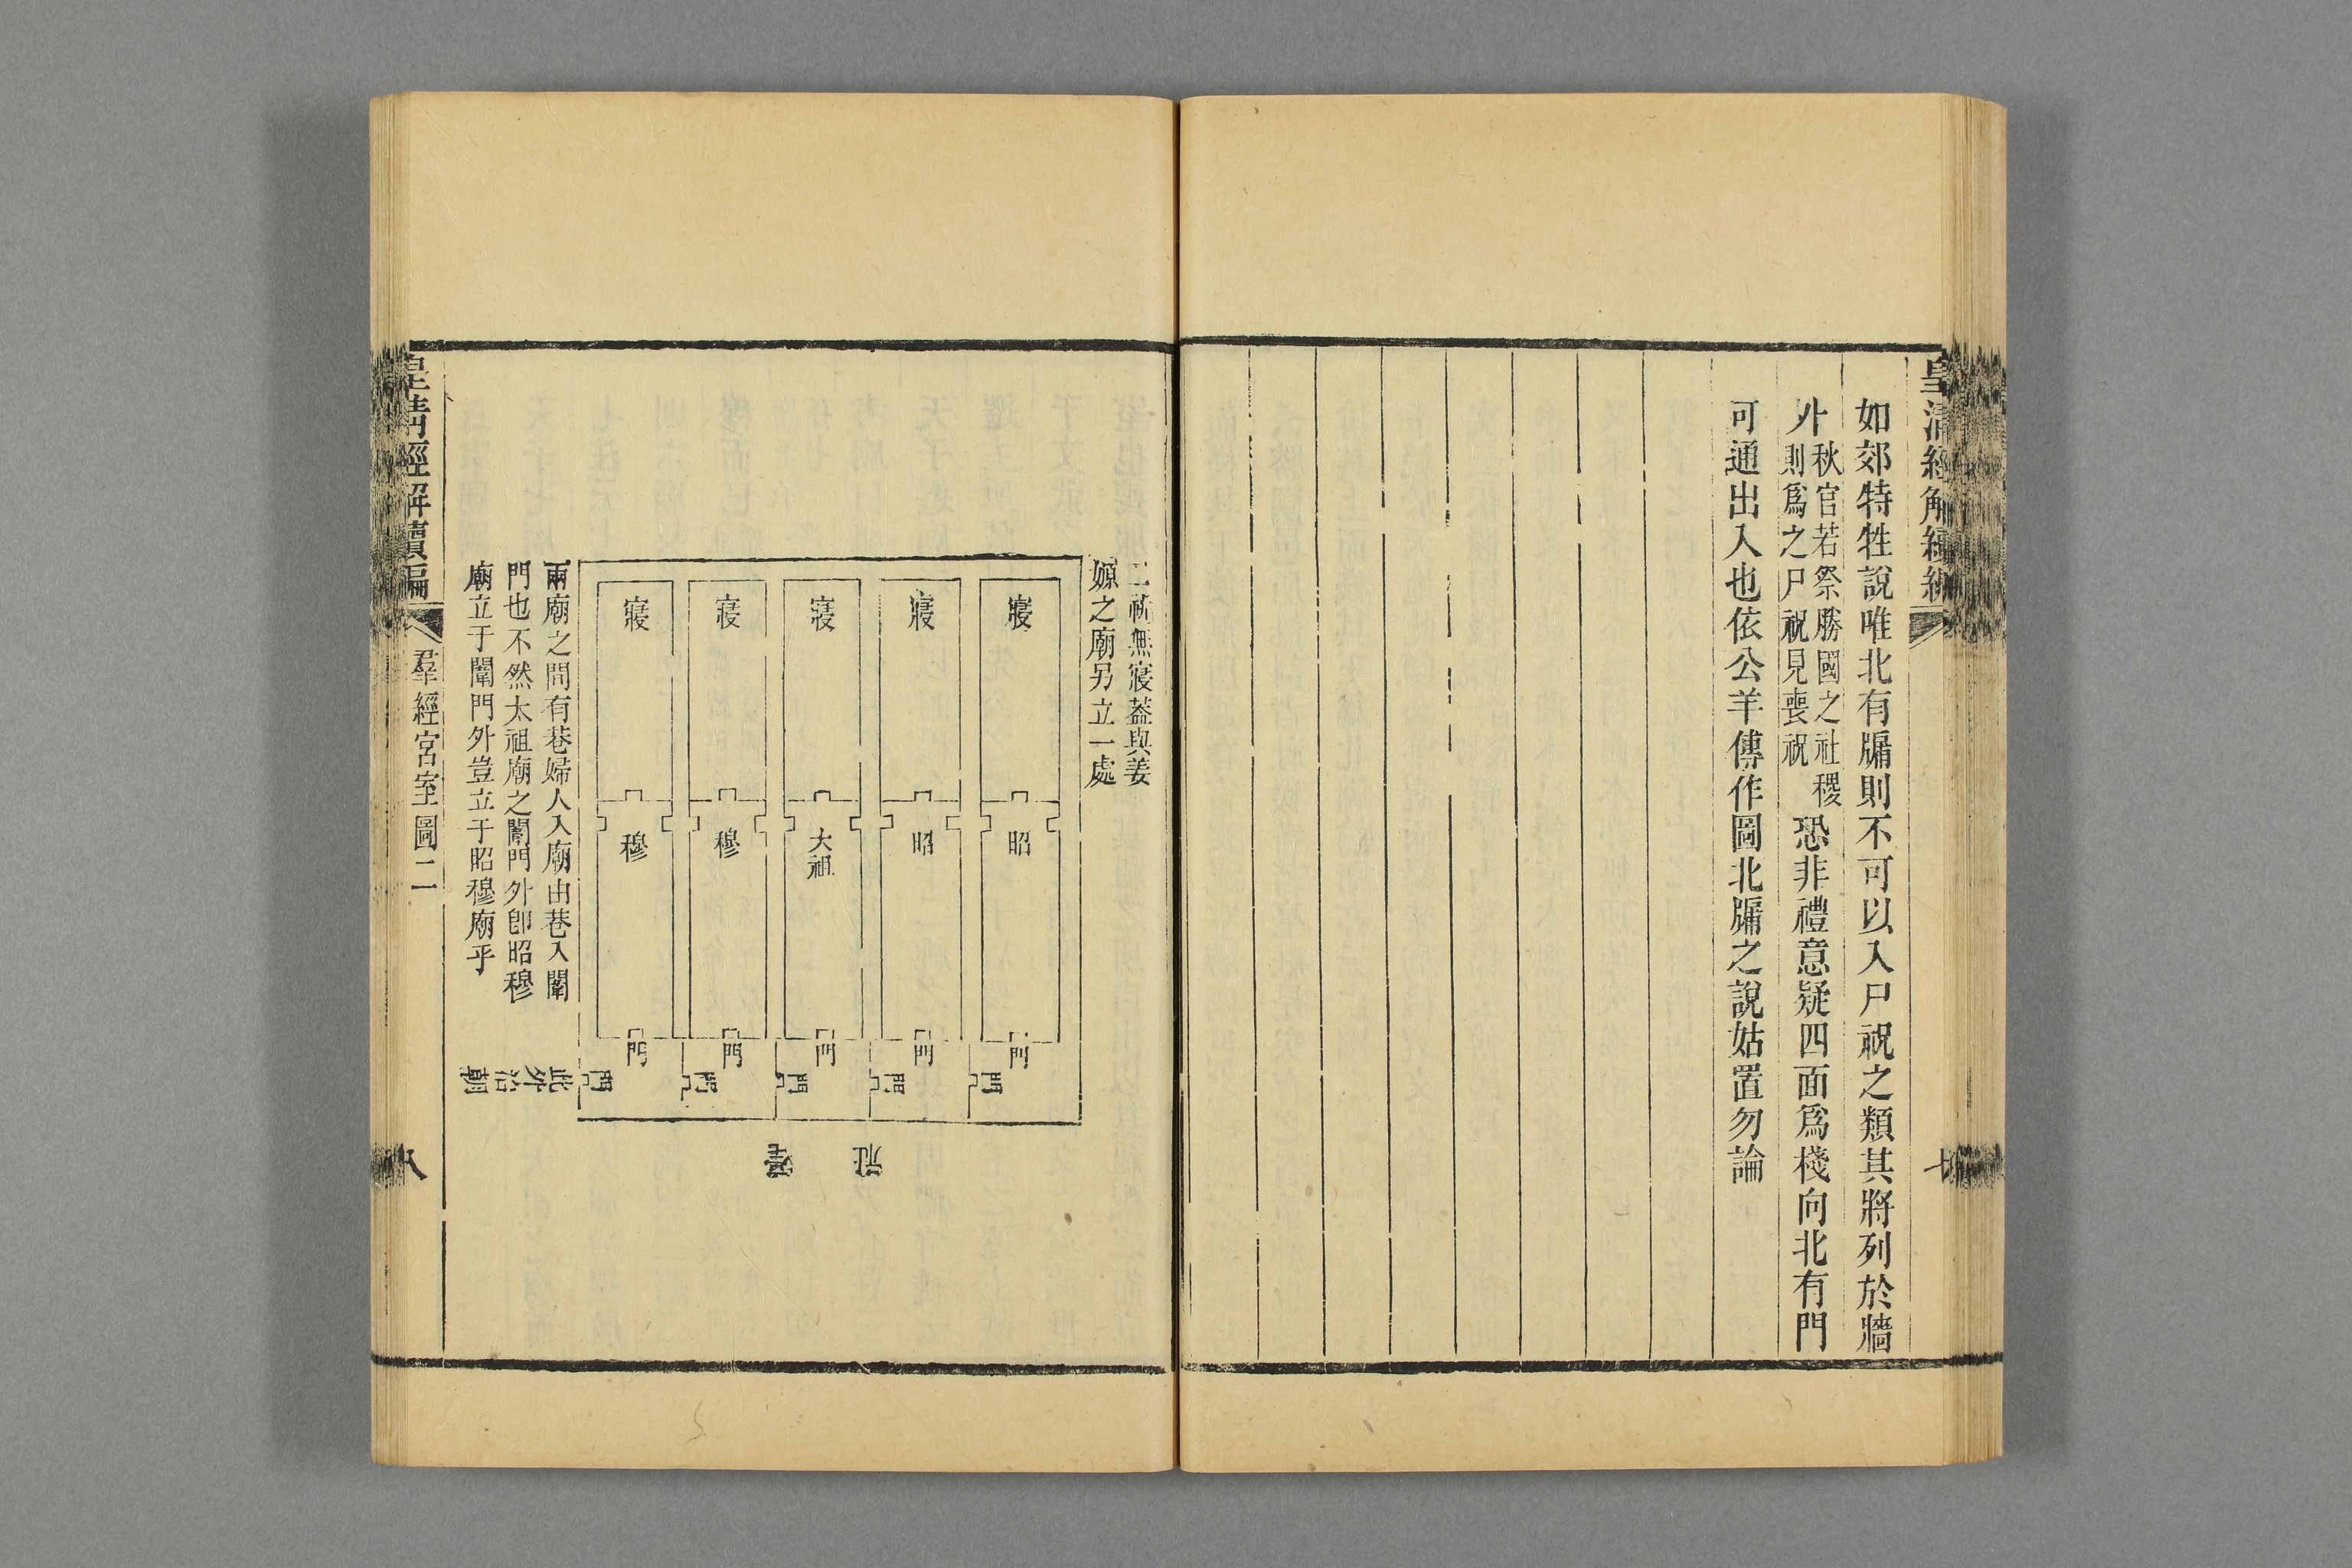 皇清經解續編
如郊特牲說唯北有牖則不可以入尸祝之類其將列於牆
外秋官若祭勝國之社稷則爲之尸祝見喪祝恐非禮意疑四面爲棧向北有門
可通出入也依公羊傳作圖北牖之說姑置勿論
七
二祧無寢葢與姜
嫄之廟另立一處
寢
寢
寢
寢
寢
昭
昭
大祖
穆
穆
門
門
門
門
門
門
門
門
門
門
社
兩廟之間有巷婦人入廟由巷入闈
門也不然太祖廟之闈門外卽昭穆
廟立于闈門外豈立于昭穆廟乎
此
外
治
朝
皇清經解續編
羣經宮室圖二
八